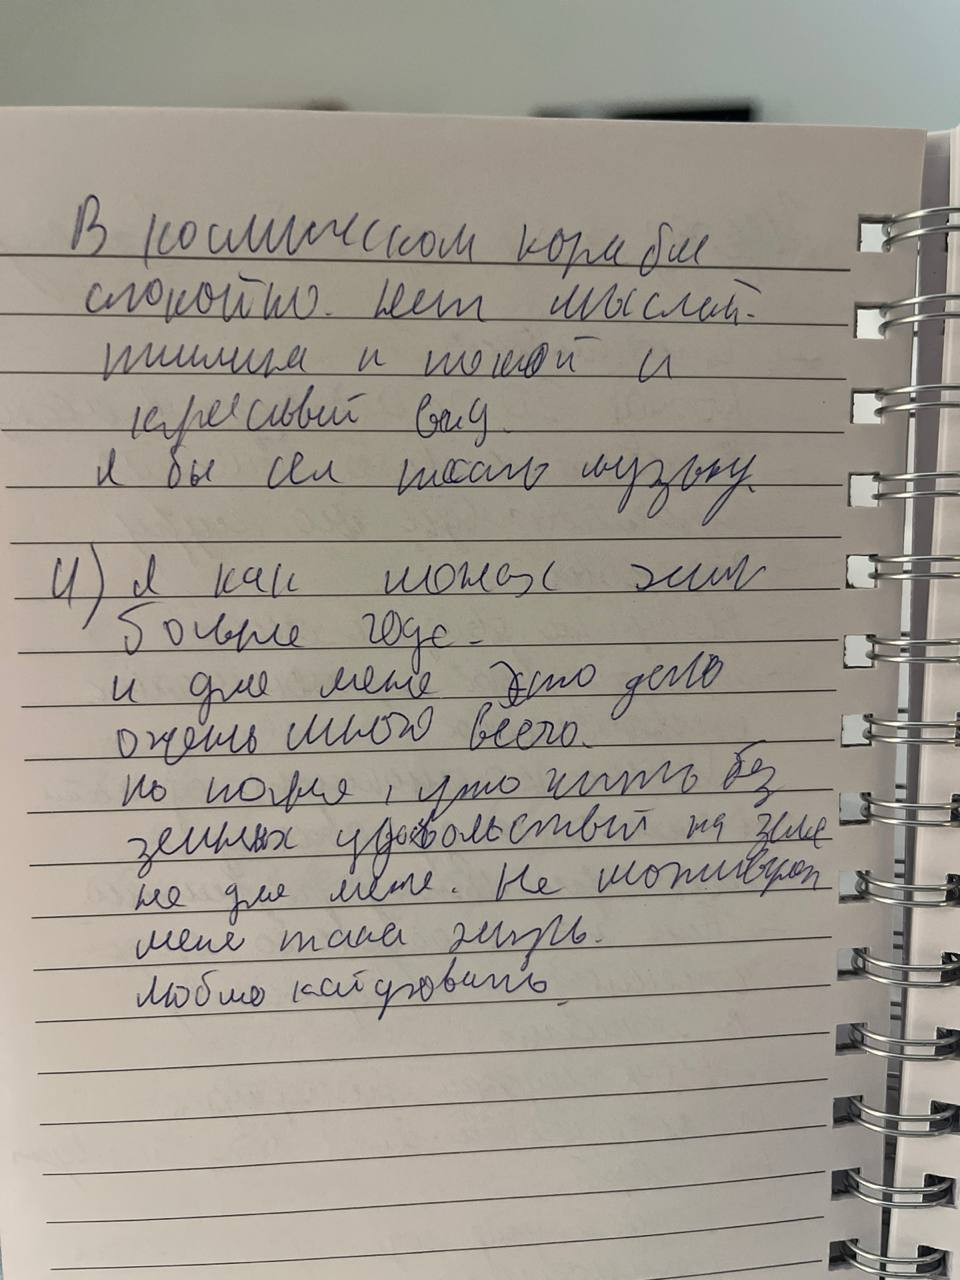 В космическом корабле
спокойно. Нет мыслей.
тишина и покой и
красивый вид.
Я бы сел писать музыку.
4) Я как монах жил
больше года.
и для меня это дело
очень много всего.
но понял, что жить без
земных удовольствий на земле
не для меня. Не мотивирует
меня такая жизнь.
Люблю кайфовать.